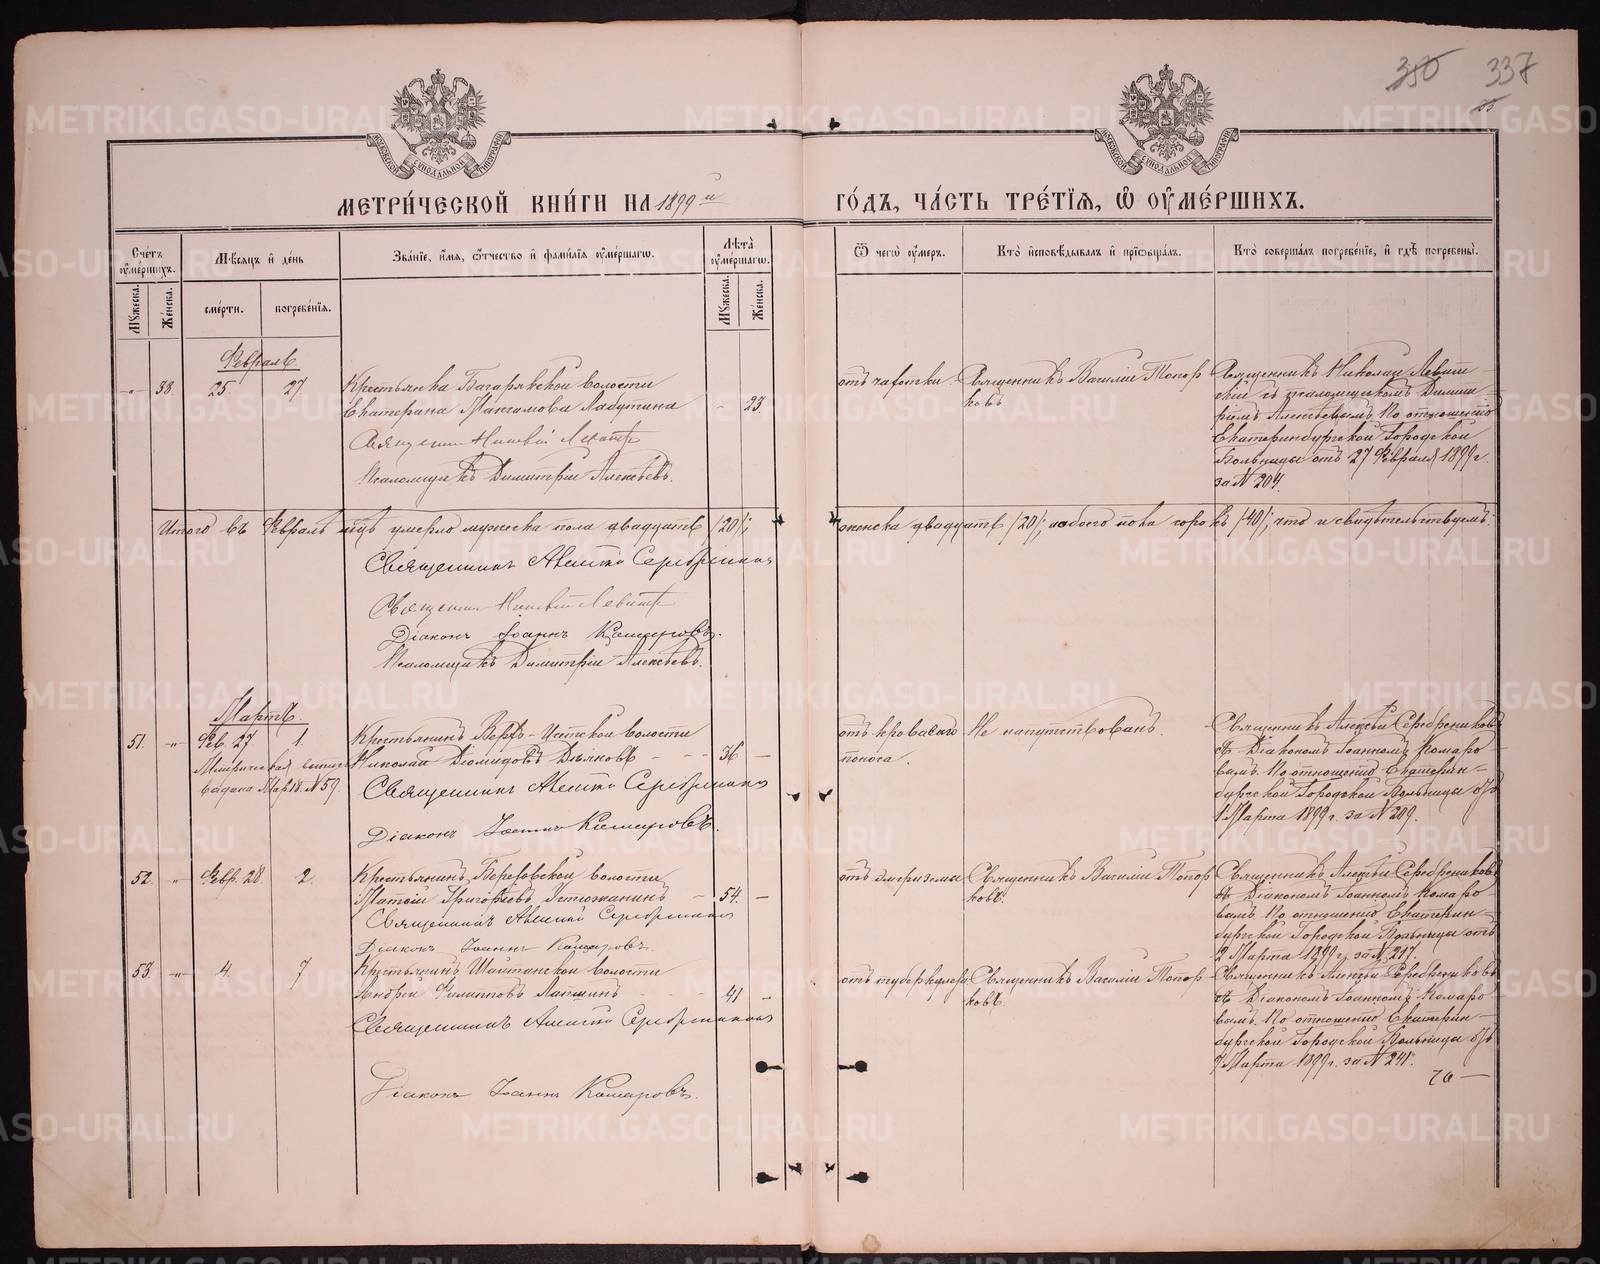 350 337
25
МЕТРИ́ЧЕСКОЙ КНИ́ГИ НА 1899 й ГО́ДЪ, ЧА́СТЬ ТРЕ́ТІЯ, Ѿ ОУМЕ́РШИХЪ.
Сче́тъ оуме́ршихъ.
Мꙋжеска.
Же́нска.
Мѣсяцъ и де́нь
сме́рти.
погребе́нія.
Зва́ніе, и́мя, о́тчество и фами́лія оуме́ршаго.
Лѣта оуме́ршаго.
Мꙋжеска.
Же́нска.
Ѿ чего оу́меръ.
Кто̀ исповѣ́дывалъ и пріобща́лъ.
Кто̀ соверша́лъ погребе́ніе, и гдѣ̀ погребены̀.
Февраль.
-"- 38. 25. 27
Крестьянка Багарякской волости
Екатерина Лабутина - 23.
Священник Николай Левит
Псаломщикъ Димитрій Алексѣевъ.
отъ чахотки.
Священникъ Василій Топор
ковъ.
Священникъ Николай Левит
скій съ псаломщикомъ Димит
ріемъ Алексѣевымъ. По отношенію
Екатеринбургской Городской
Больницы отъ 27 Февраля 1899 г.
за N 204.
Итого въ Февралѣ м-цѣ умерло мужеска пола двадцать /20/; женска двадцать /20/; обоего пола сорокъ /40/; что и свидѣтельствуемъ:
Священникъ Алексѣй Серебренниковъ
Священник Николай Левит
Діаконъ Іоаннъ Комаровъ.
Псаломщикъ Димитрій Алексѣевъ.
Мартъ.
51. -"- Фев. 27 1.
Метрическая выпись
выдана Мар. 18. N 59.
Крестьянинъ Верхъ-Исетской волости
Николай Діомидовъ - - - 36 -
Священникъ Алексѣй Серебренниковъ
Діаконъ Іоаннъ Комаровъ.
отъ кроваваго
поноса.
Не напутствованъ.
Священникъ Алексѣй Серебренниковъ
съ Діакономъ Іоанномъ Комаро
вымъ. По отношенію Екатерин-
бургской Городской Больницы отъ
1 Марта 1899 г. за N 209.
52. -"- Февр. 28. 2.
Крестьянинъ Березовской волости
Матѳій Григорьевъ Устюжанинъ - 54. -
Священникъ Алексѣй Серебренниковъ
Діаконъ Іоаннъ Комаровъ.
отъ эмфиземы
Священникъ Василій Топор
ковъ.
Священникъ Алексѣй Серебренниковъ
съ Діакономъ Іоанномъ Комаро
вымъ. По отношенію Екатерин-
бургской Городской Больницы отъ
2 Марта 1899 г. за N 217.
53. -"- 4. 7
Крестьянинъ Шайтанской волости
Андрей Филипповъ Лапшинъ - - - 41 -
Священникъ Алексѣй Серебренниковъ
Діаконъ Іоаннъ Комаровъ.
отъ туберкулеза
Священникъ Василій Топор
ковъ.
Священникъ Алексѣй Серебренниковъ
съ Діакономъ Іоанномъ Комаро
вымъ. По отношенію Екатерин-
бургской Городской Больницы отъ
7 Марта 1899 г. за N 241.
METRIKI.GASO-URAL.RU